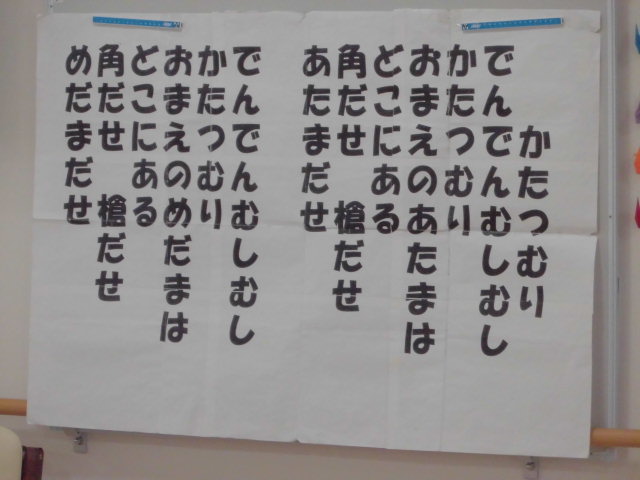 かたつむり
でんでんむしむし
かたつむり
おまえのあたまは
どこにある
角だせ　槍だせ
あたまだせ
でんでんむしむし
かたつむり
おまえのめだまは
どこにある
角だせ　槍だせ
めだまだせ